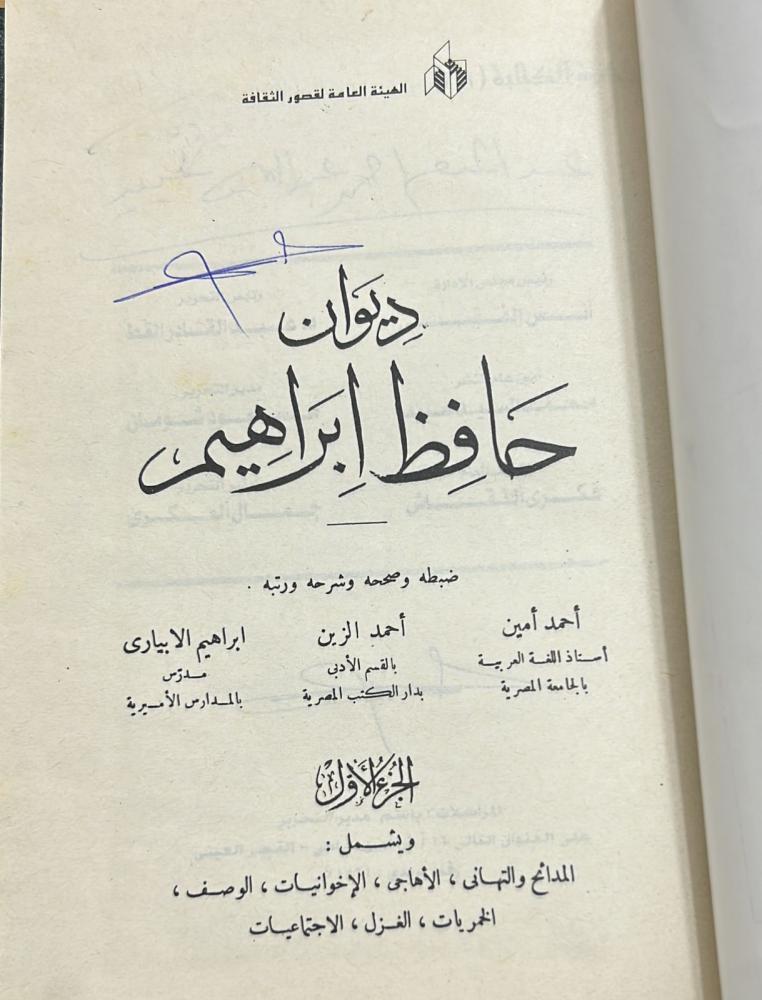 الهيئة العامة لقصور الثقافة
دِيوَان
حَافِظ اِبرَاهِيم
ضبطه وصححه وشرحه ورتبه .
أحمد أمين
أستاذ اللغة العربية
بالجامعة المصرية
أحمد الزين
بالقسم الأدبى
بدار الكتب المصرية
ابراهيم الابيارى
مدرّس
بالمدارس الأميرية
الجزء الأول
ويشمل :
المدائح والتهانى ، الأهاجى ، الإخوانيات ، الوصف ،
الخمريات ، الغزل ، الاجتماعيات